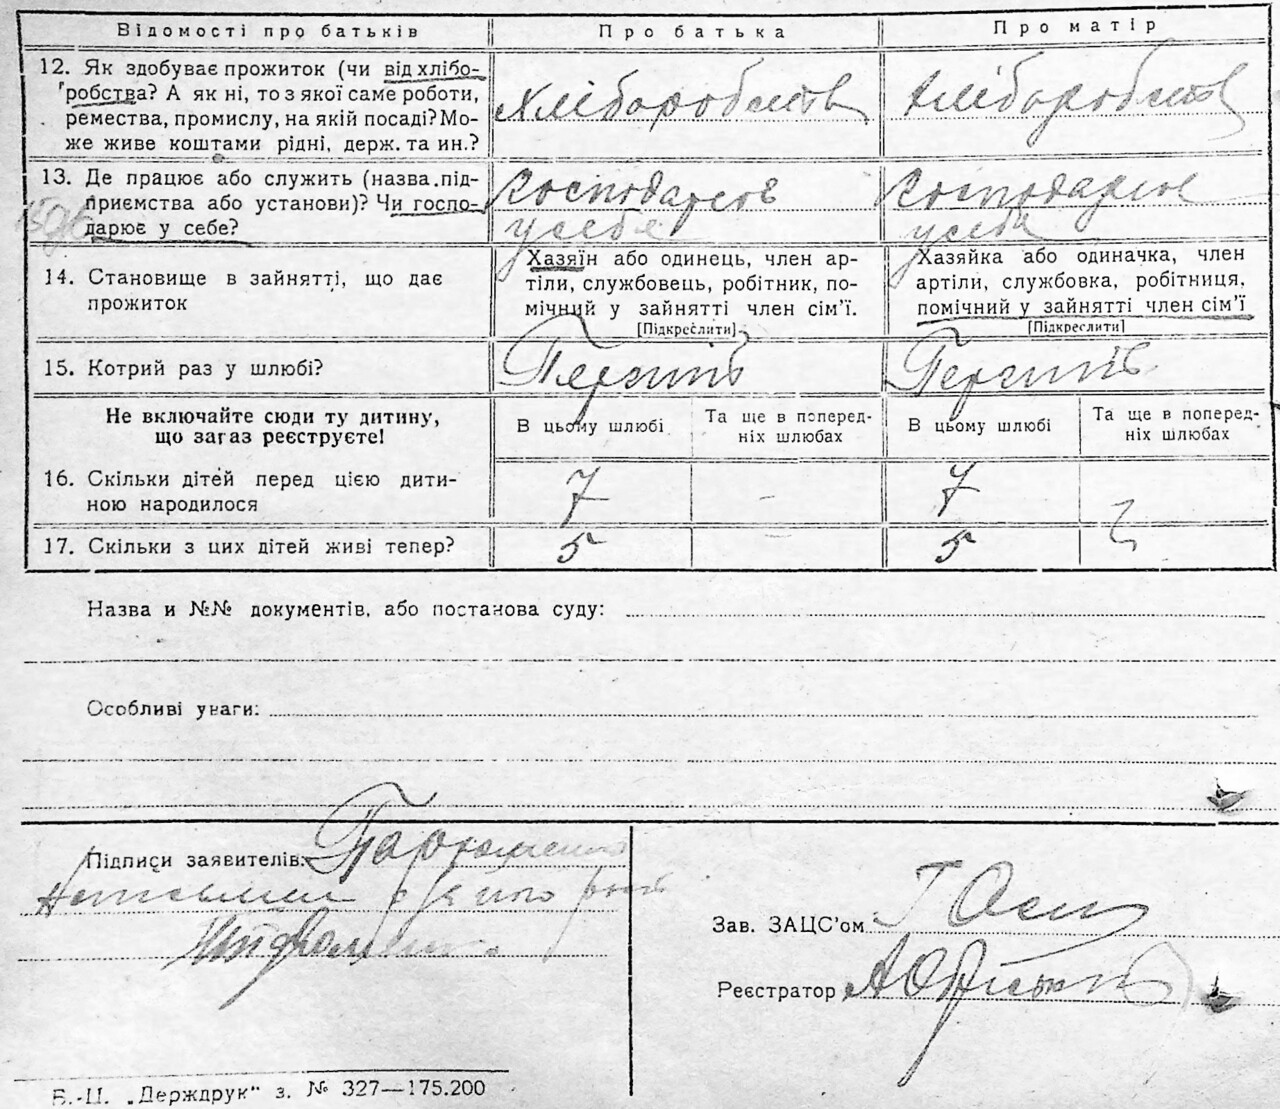 Відомості про батьків Про батька Про матір
12. Як здобуває прожиток (чи від хлібо-
робства? А як ні, то з якої саме роботи,
ремества, промислу, на якій посаді? Мо-
же живе коштами рідні, держ. та ин.?
Хліборобств Хліборобств
13. Де працює або служить (назва під-
приємства або установи)? Чи госпо-
дарює у себе?
Господарює Господарює
у себе у себе
14. Становище в зайнятті, що дає
прожиток
Хазяїн або одинець, член ар-
тіли, службовець, робітник, по-
мічний у зайнятті член сім'ї.
[Підкреслити]
Хазяйка або одиначка, член
артіли, службовка, робітниця,
помічний у зайнятті член сім'ї
[Підкреслити]
15. Котрий раз у шлюбі?
Не включайте сюди ту дитину,
що загаз реєструєте!
В цьому шлюбі Та ще в поперед-
ніх шлюбах В цьому шлюбі Та ще в поперед-
ніх шлюбах
16. Скільки дітей перед цією дити-
ною народилося
7 – 7
17. Скільки з цих дітей живі тепер?
5 5
Назва и №№ документів, або постанова суду:
Особливі уваги:
Підписи заявителів:
Зав. ЗАЦС'ом
Реєстратор
Б.-Ц. „Держдрук" з. № 327—175.200